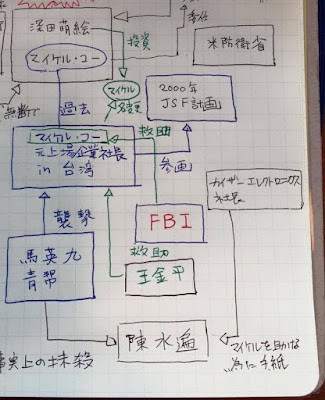 深田萌絵
マイケル・コー
投資
委任
米防衛省
無断で
過去
マイケル
名義
2000年
JSF計画
救助
マイケル・コー
元上場企業社長
in 台湾
参画
カイザーエレクトロニクス
社長
襲撃
FBI
救助
馬英九
青幇
王金平
陳水遍
マイケルを助ける
為に手紙
事実上の抹殺